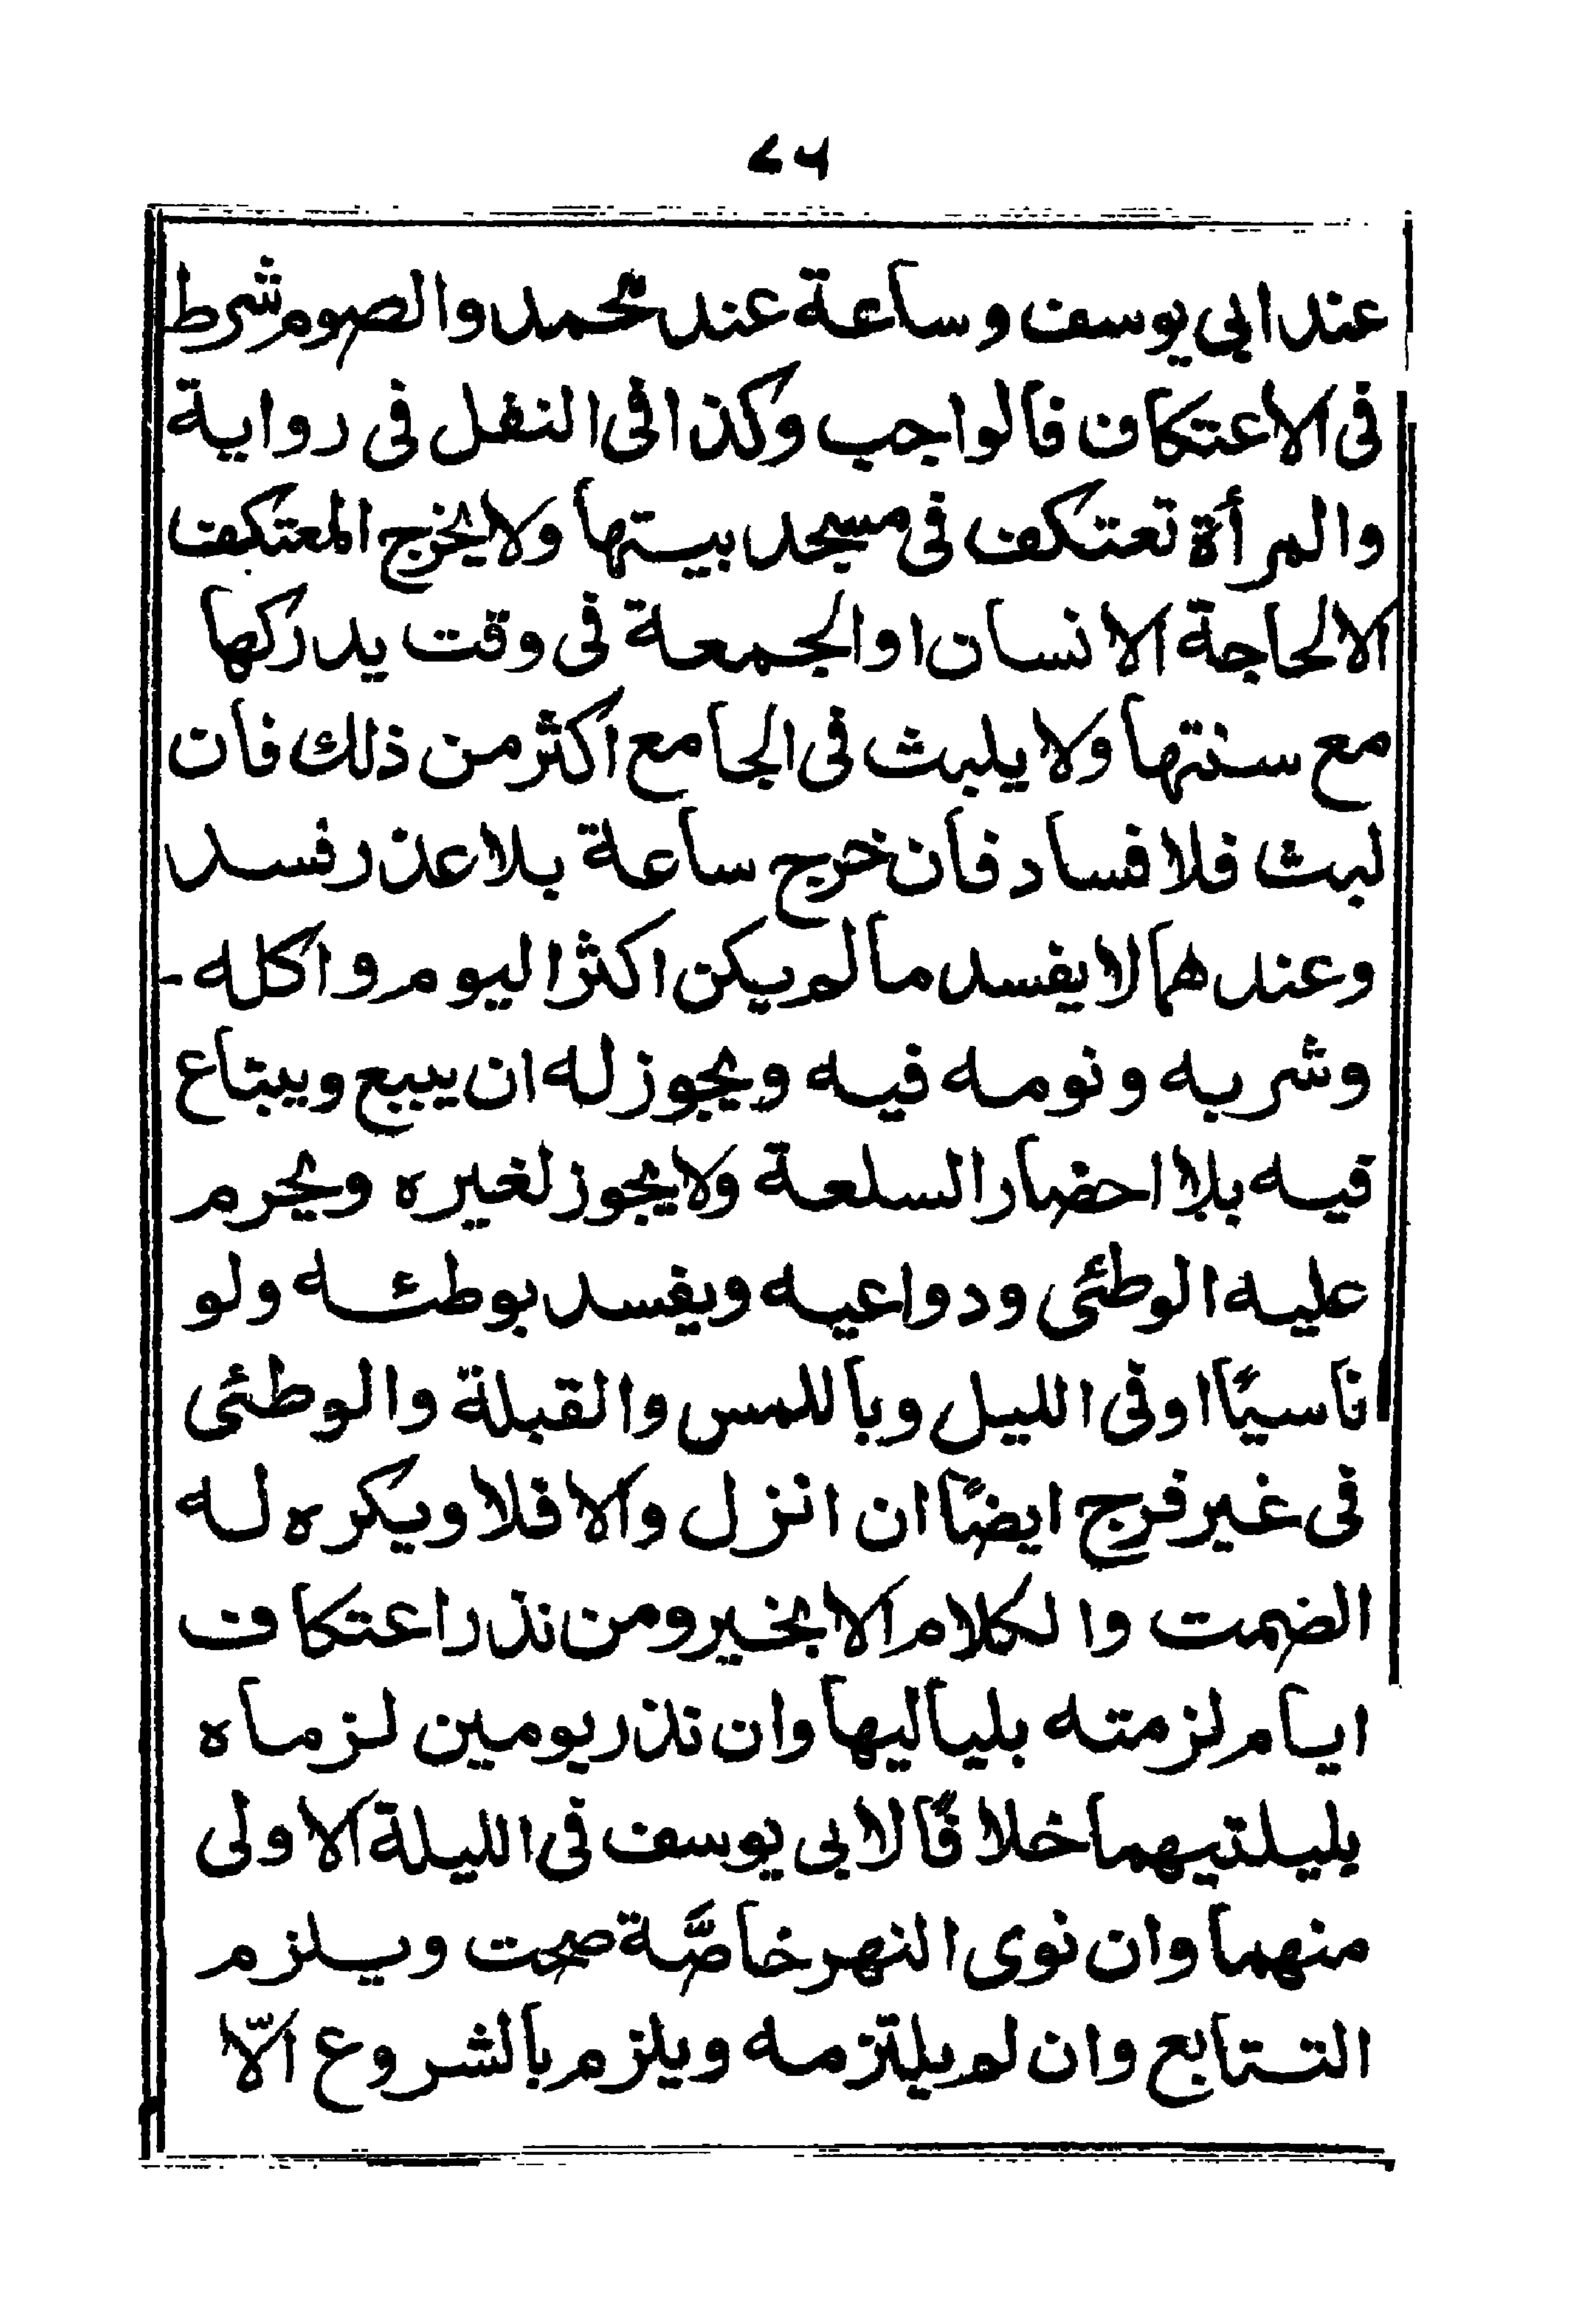 ٤٦
عند ابى يوسف وساعة عند محمد والصوم شرط
فى الاعتكاف فالواجب وكذا فى النفل فى رواية
والمرأة تعتكف فى مسجد بيتها ولا يخرج المعتكف
الا لحاجة الانسان او الجمعة فى وقت يدركها
مع سنتها ولا يلبث فى الجامع اكثر من ذلك فان
لبث فلا فساد فان خرج ساعة بلا عذر فسد
وعندهما لا يفسد مالم يكن اكثر اليوم واكله -
وشربه ونومه فيه ويجوز له ان يبيع ويبتاع
فيه بلا احضار السلعة ولا يجوز لغيره ويحرم
عليه الوطئى ودواعيه ويفسد بوطئه ولو
ناسيًا او فى الليل وباللمس والقبلة والوطئى
فى غير فرج ايضًا ان انزل والا فلا ويكره له
الضمت والكلام الا بخير ومن نذر اعتكاف
ايام لزمته بلياليها وان نذر يومين لزماه
بليلتيهما خلافًا لابى يوسف فى الليلة الاولى
منهما وان نوى النهر خاصّة صحت ويلزم
التتابع وان لم يلتزمه ويلزم بالشروع الّا